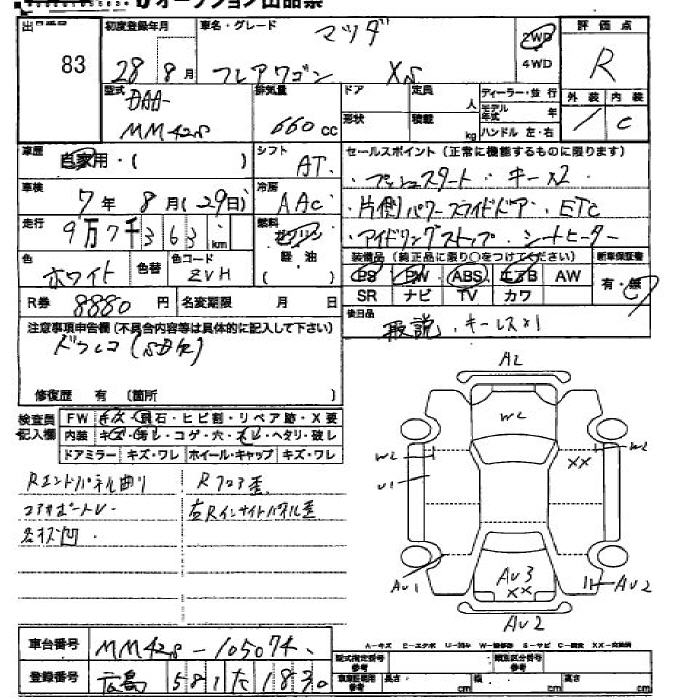 オークション出品票
83
初度登録年月 28年8月
車名・グレード マツダ
フレアワゴン XS
2WD
4WD
評価点
R
外装 内装
/ C
型式 DAA-
MM42S
排気量 660 cc
ドア
形状
定員 人
積載 kg
ディーラー・並行
モデル年式 年
ハンドル 左・右
車歴 自家用・( )
シフト AT
車検 7年8月(29日)
冷房 AAC
走行 9万7千363km
燃料 ガソリン
軽油
( )
色 ホワイト
色替
色コード ZVH
R券 8880円
名変期限 月 日
セールスポイント(正常に機能するものに限ります)
・プッシュスタート・キー×2・
・片側パワースライドドア・ETC
・アイドリングストップ・シートヒーター
装備品(純正品に限り○をつけてください)
PS PW ABS エアB AW
SR ナビ TV カワ
新車保証書
有・無
後日品
取説・キーレス×1
注意事項申告欄(不具合内容等は具体的に記入して下さい)
ドラレコ(SD欠)
修復歴 有(箇所 )
検査員記入欄
FW キズ・飛石・ヒビ割・リペア跡・X要
内装 キズ・汚レ・コゲ・穴・スレ・ヘタリ・破レ
ドアミラー キズ・ワレ ホイール・キャップ キズ・ワレ
Rエンドパネル曲リ
Rフロア歪
コアサポートU
左Rインサイドパネル歪
各キズ凹
A2
W2
W2
U1
W2
XX
AU1
AU3
XX
AU2
AU2
車台番号 MM42S-105074
登録番号 広島 581 た 1830
A-キズ E-エクボ U-凹ミ W-補修跡 S-サビ C-腐食 XX-交換済
型式指定番号
参考
類別区分番号
参考
車庫証明用
参考
長さ cm
幅 cm
高さ cm